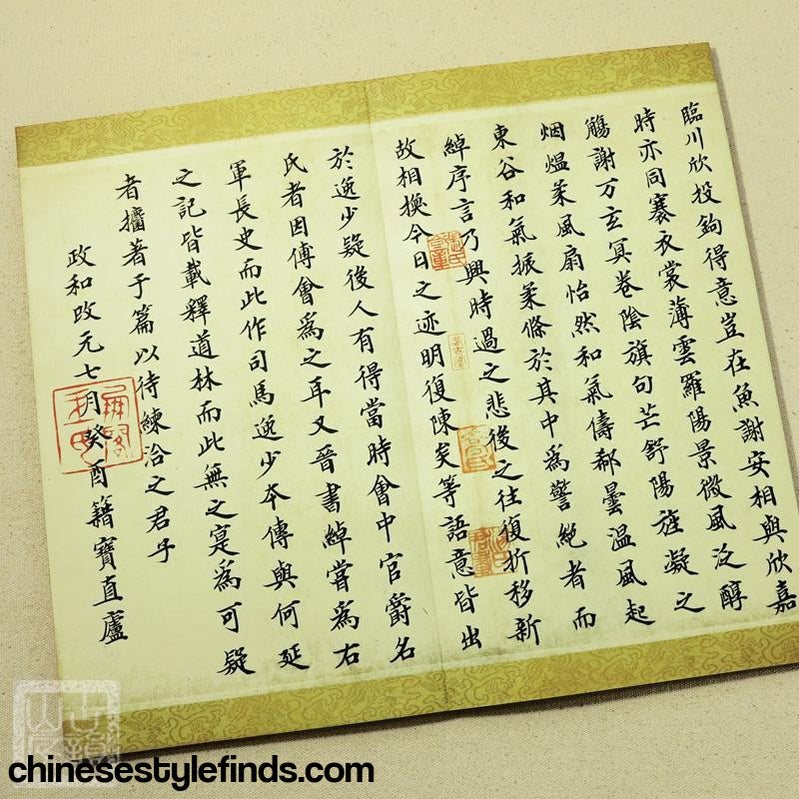 臨川欣投鉤得意豈在魚謝安相與欣嘉
時亦同褰衣裳薄雲羅陽景微風泛醇
觴謝万玄冥卷陰旗句芒舒陽旌凝之
烟熅柔風扇怡然和氣儔郗曇温風起
東谷和氣振柔條於其中為警絶者而
綽序言乃興時過之悲後之往復折移新
故相換今日之迹明復陳矣等語意皆出
於逸少疑後人有得當時會中官爵名
氏者因傅會為之耳又晉書綽嘗為右
軍長史而此作司馬逸少夲傳與何延
之記皆載釋道林而此無之寔為可疑
者攟著于篇以待練洽之君乎
政和改元七月癸酉籍寶直廬
chinesestylefinds.com